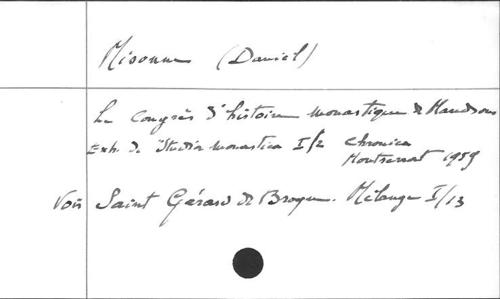 Misonne (Daniel)
Le Congrès d'histoire monastique de Maredsous
Ext. de Studia monastica I/2 Chronica
Montserrat 1959
Voir Saint Gérard de Brogne. Mélange I/13